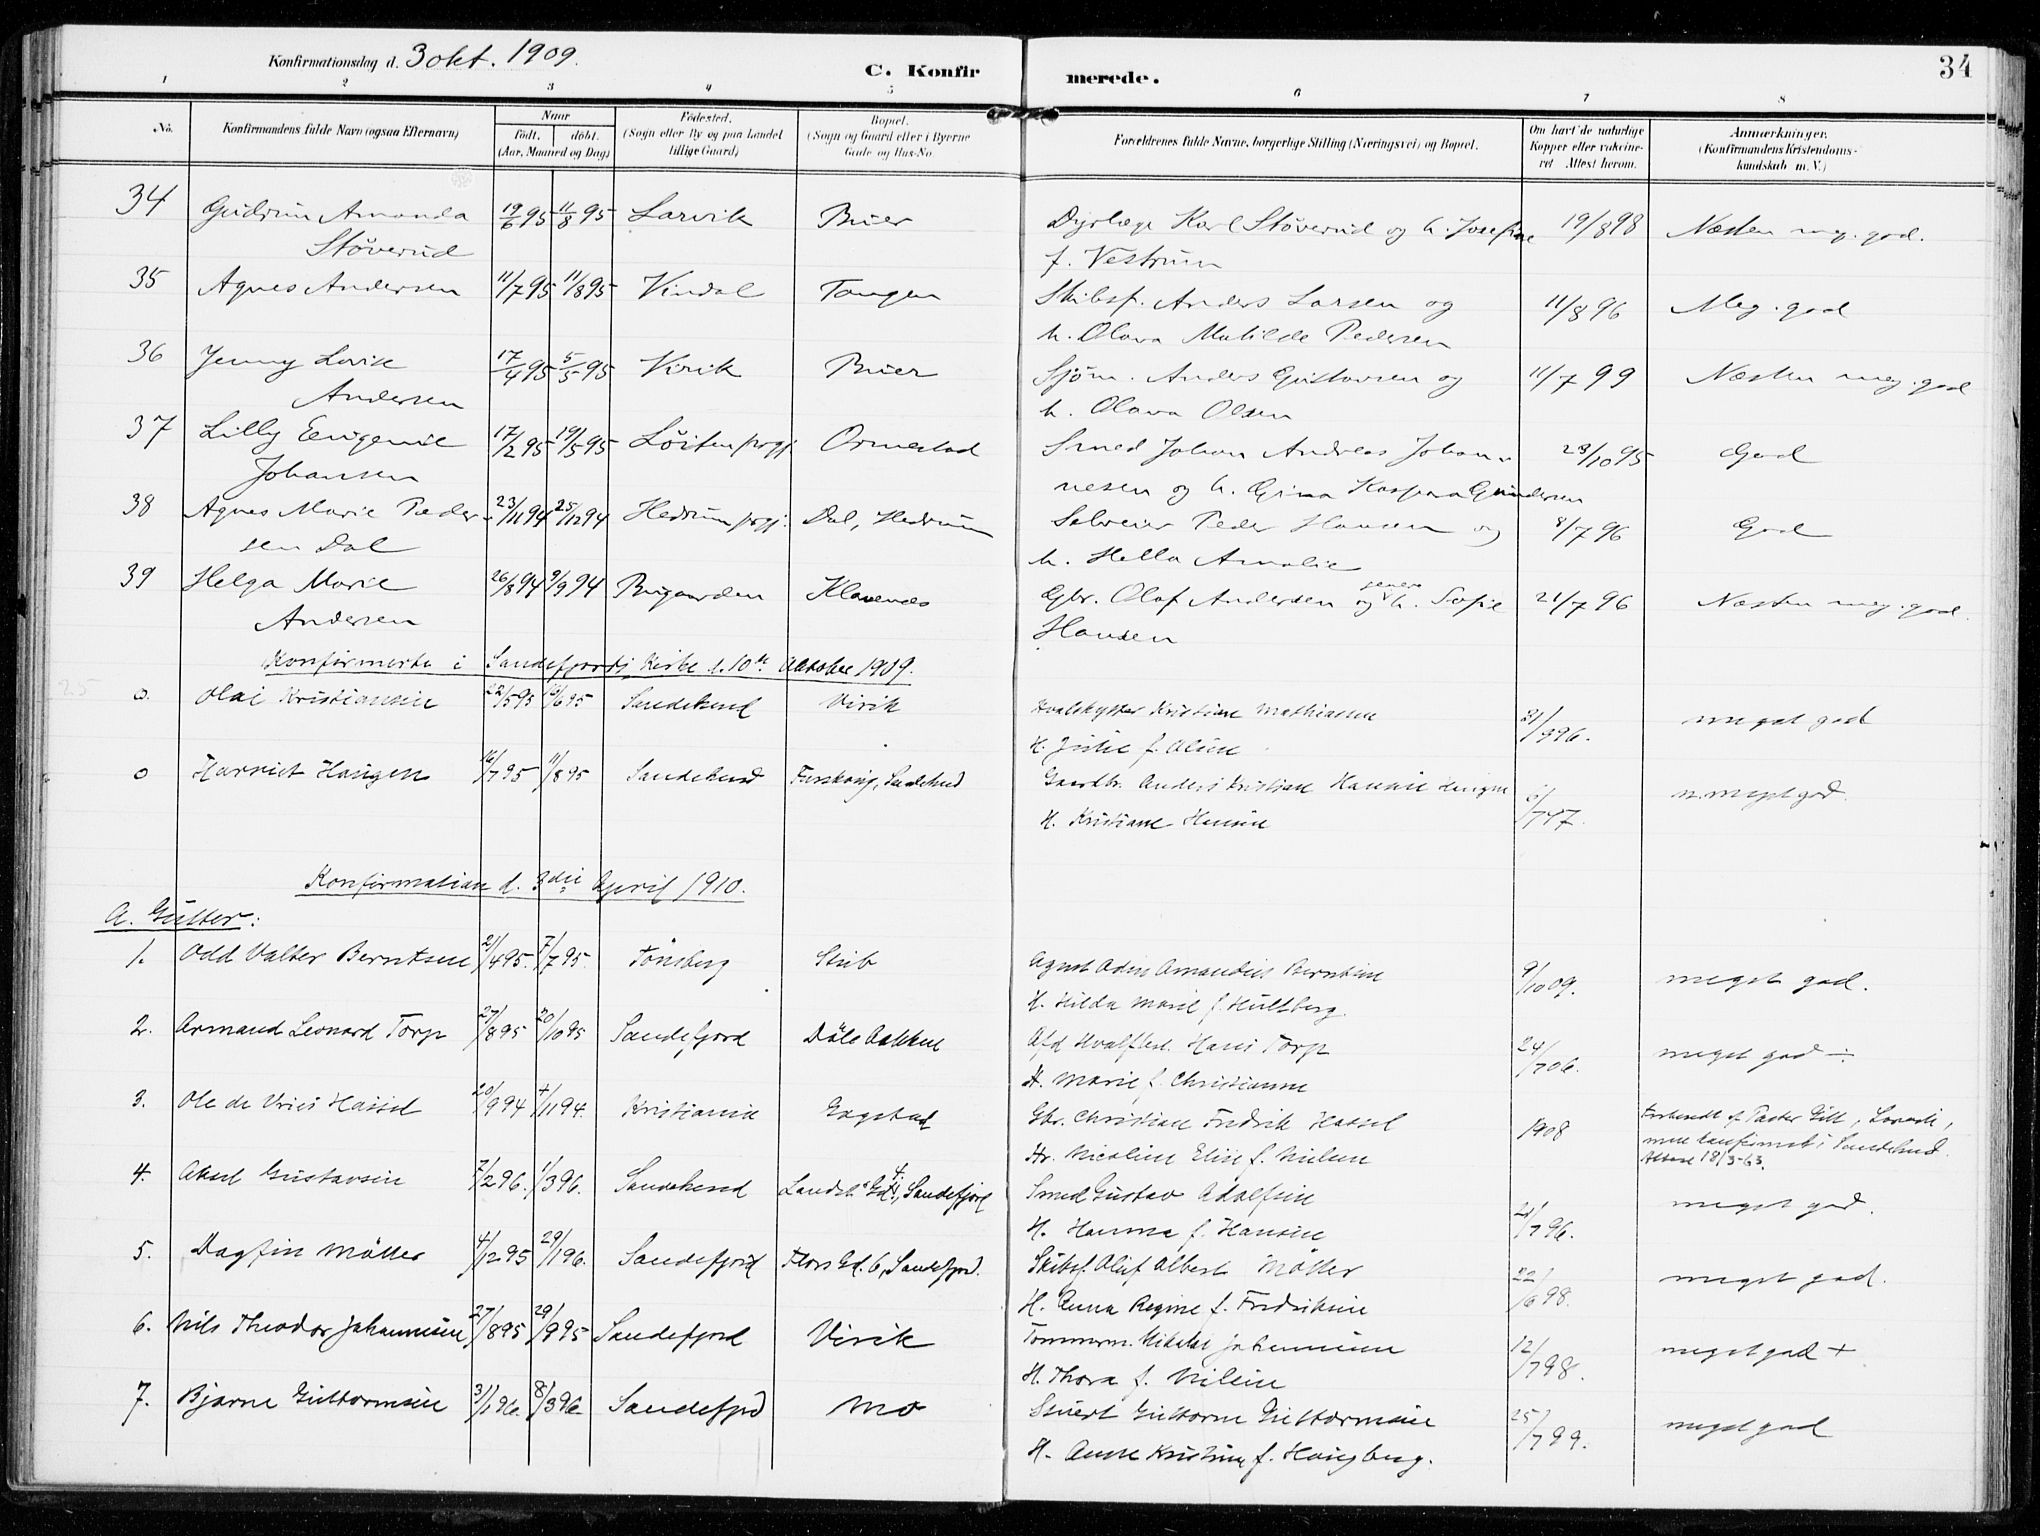 Konfirmationsdag d. 3 okt. 1909.
C. Konfirmerede.
34
1 2 3 4 5 6 7 8
No.
Konfirmandens fulde Navn (ogsaa Efternavn)
Naar
født. døbt.
(Aar, Maaned og Dag)
Fødested.
(Sogn eller By og paa Landet
tillige Gaard)
Bopæl.
(Sogn og Gaard eller i Byerne
Gade og Hus-No.
Forældrenes fulde Navne, borgerlige Stilling (Næringsvei) og Bopæl.
Om havt de naturlige
Kopper eller vakcine-
ret Attest herom.
Anmærkninger.
(Konfirmandens Kristendoms-
kundskab m. V.)
34 Gudrun Amanda 19/6 95 11/8 95 Larvik Buer Dyrlæge Karl Støverud og h. Josefine 19/8 98 Næsten meg. god.
Støverud f. Vestrum
35 Agnes Andersen 11/7 95 11/8 95 Vindal Tangen Skibsf. Anders Larsen og 11/8 96 Meg. god
h. Olava Matilde Pedersen
36 Jenny Lovise 17/4 95 5/5 95 Virik Buer Sjøm. Anders Gustavsen og 11/7 99 Næsten meg. god
Andersen h. Olava Olsen
37 Lilly Eugenie 17/2 95 19/5 95 Løiten prgj. Ormestad Smed Johan Andreas Johan- 23/10 95 God
Johansen nesen og h. Gina Kaspara Gundersen
38 Agnes Marie Peder- 23/11 94 25/12 94 Hedrum prgj. Dal, Hedrum Selveier Peder Hansen og 8/7 96 God
sen Dal h. Hella Amalie
39 Helga Marie 26/8 94 9/9 94 Bugaarden Klavenæs Gbr. Olaf Andersen og h. Sofie 21/7 96 Næsten meg. god.
Andersen Hansen
Konfirmerte i Sandefjords Kirke d. 10de Oktober 1909.
o. Olai Kristiansen 22/5 95 /6 95 Sandeherred Virik Hvalskytter Kristian Mathiassen 21/ 96. meget god
H. Julie f. Olsen
o Harriet Haugen 16/7 95 11/8 95 Sandeherred Furskoug, Sandeherred Gaardbr. Anders Kristian Hansen Haugen 6/7 n. meget god.
H. Kristiane Hansen
Konfirmation d. 3die April 1910.
A. Gutter:
1. Odd Valter Berntsen 21/4 95. 7/7 95. Tönsberg Stub Agent Odin Amandus Berntsen 9/10 09. meget god.
H. Hilda Marie f. Hultberg.
2. Armand Leonard Torp 27/8 95 20/10 95 Sandefjord Döle bakken Afd Hvalfbest. Hans Torp 24/7 06. meget god ÷
H. Marie f. Christiansen
3. Ole de Vries Hassel 20/9 94 4/11 94. Kristiania Gogstad Gbr. Christian Fredrik Hassel 1908
H. Nicoline Elise f. Nielsen
4. Aksel Gustavsen 7/2 96. 1/3 96. Sandeherred Landst. Gd. 4, Sandefjord Smed Gustav Adolfsen 21/7 96. meget god.
H. Hanna f. Hansen
5. Dagfin Möller 4/12 95 29/1 96. Sandefjord Thors Gd. 6, Sandefjord. Skibsf. Oluf Albert Möller 22/6 98. meget god.
H. Anna Regine f. Fredriksen
6. Nils Theodor Johannesen 27/8 95 29/9 95 Sandefjord Virik Tömmerm. Nikolai Johannesen 12/7 98. meget god +
H. Thora f. Nilsen
7. Bjarne Guttormsen 3/1 96. 8/3 96. Sandefjord Mo Stuert Guttorm Guttormsen 25/7 99. meget god
H. Anne Kristine f. Haugberg.